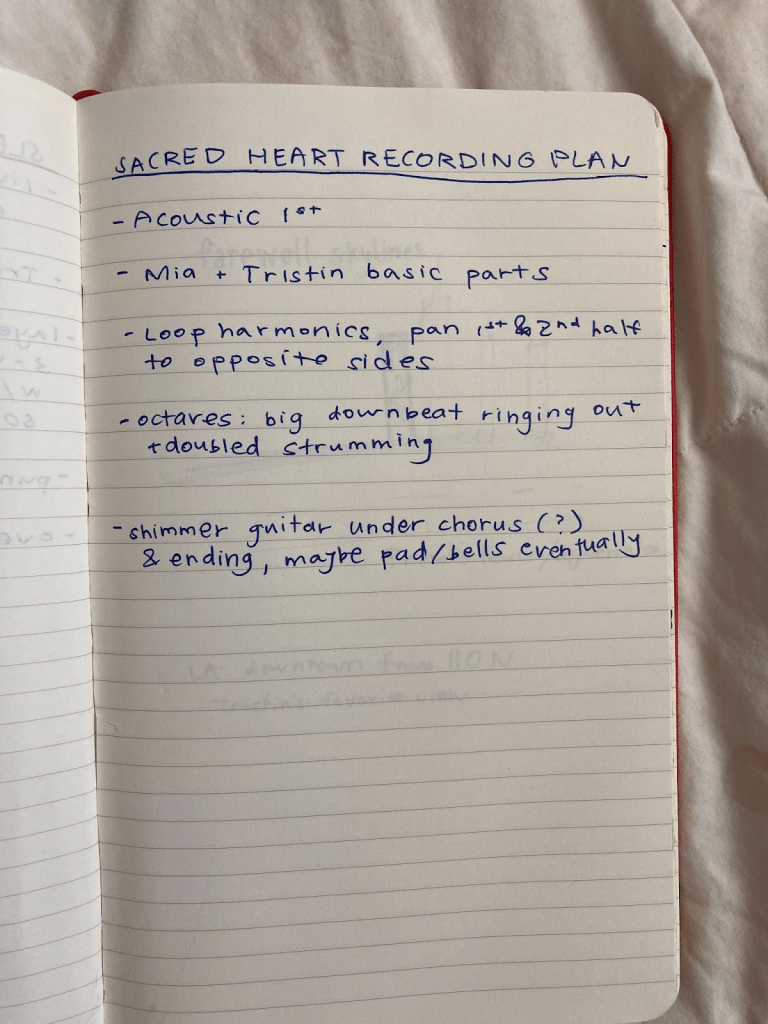 SACRED HEART RECORDING PLAN
- Acoustic 1st
- Mia + Tristin basic parts
- Loop harmonics, pan 1st & 2nd half
to opposite sides
- octaves: big downbeat ringing out
+ doubled strumming
- shimmer guitar under chorus (?)
& ending, maybe pad/bells eventually
farewell skylines
LA downtown from 110 N
favorite view